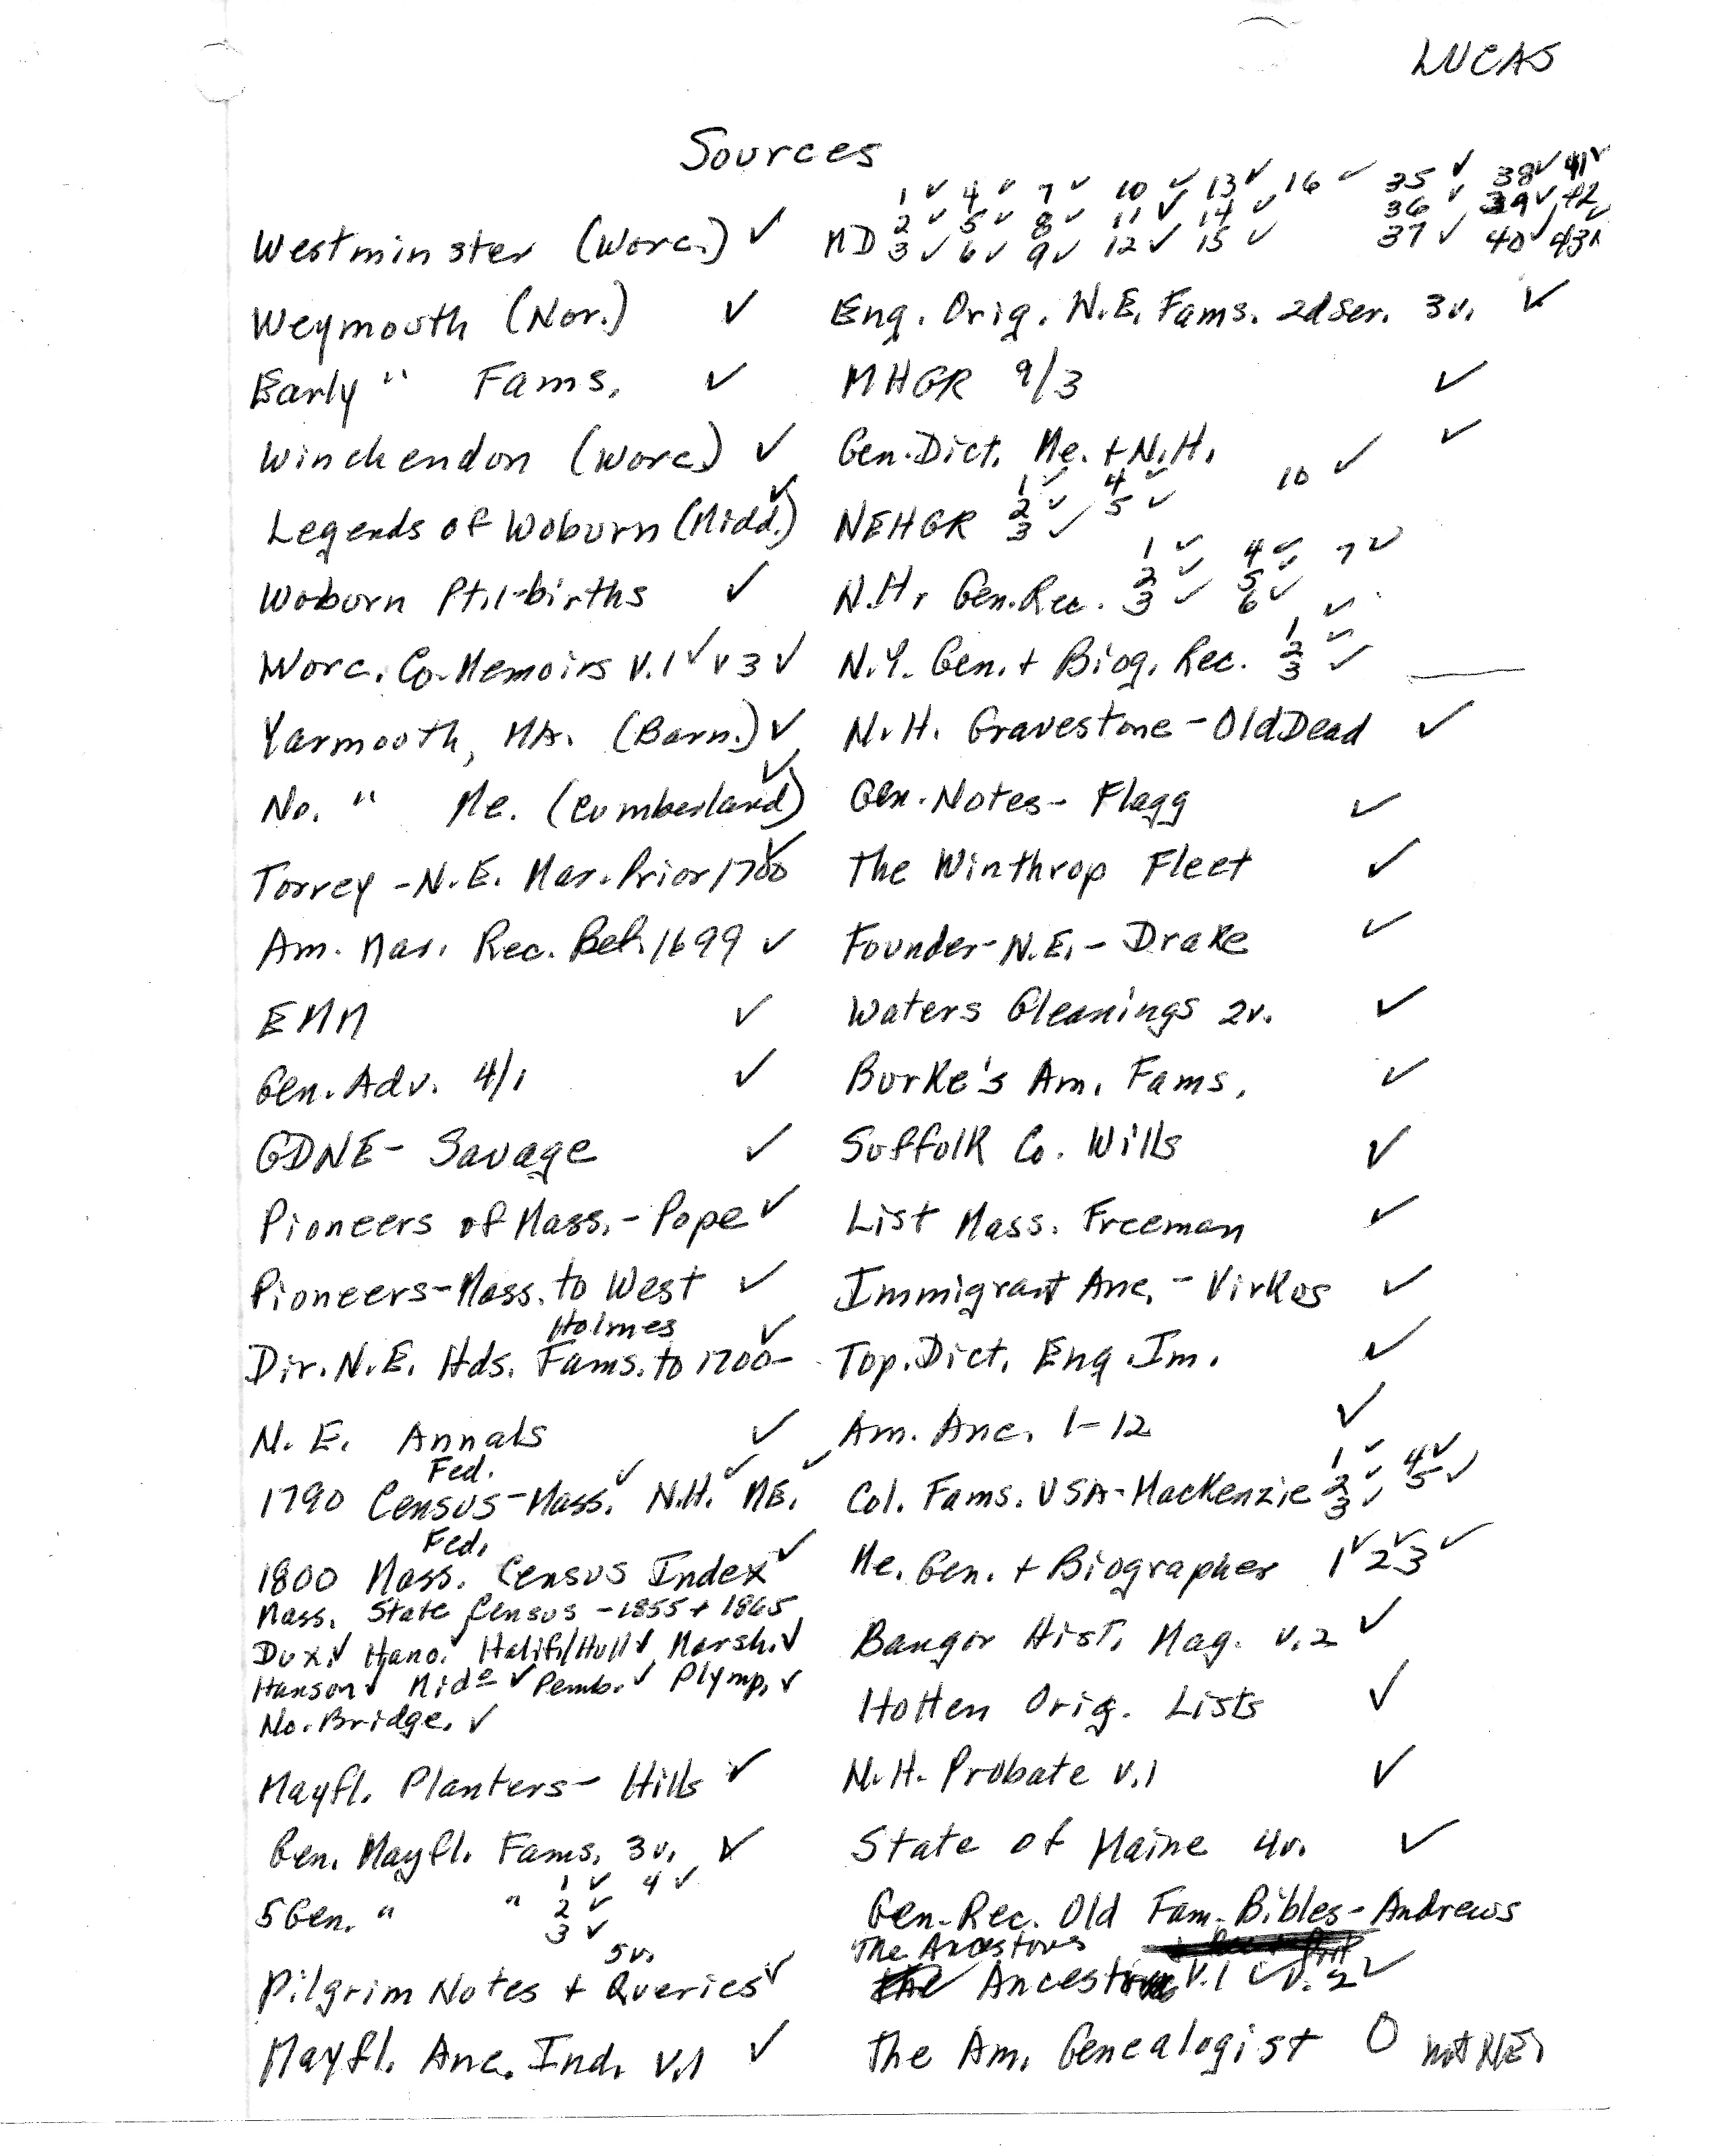 LUCAS
Sources
Westminster (Worc.) ✓
Weymouth (Nor.) ✓
Early " Fams. ✓
Winchendon (Worc.) ✓
Legends of Woburn (Midd.) ✓
Woburn Pt.1-births ✓
Worc. Co. Memoirs v.1 ✓ v 3 ✓
Yarmouth, MA. (Barn.) ✓
No. " Me. (Cumberland) ✓
Torrey - N.E. Mar. Prior 1700 ✓
Am. Mar. Rec. Bef. 1699 ✓
EMM ✓
Gen. Adv. 4/1 ✓
GDNE - Savage ✓
Pioneers of Mass. - Pope ✓
Pioneers - Mass. to West ✓
Holmes ✓
Dir. N.E. Hds. Fams. to 1700-
N. E. Annals ✓
Fed.
1790 Census - Mass. ✓ N.H. ✓ ME. ✓
Fed.
1800 Mass. Census Index ✓
Mass. State Census - 1855 + 1865
Dux. ✓ Hano. ✓ Halif./Hull ✓ Marsh. ✓
Hanson ✓ Mid ✓ Pemb. ✓ Plymp. ✓
No. Bridge. ✓
Mayfl. Planters - Hills ✓
Gen. Mayfl. Fams. 3v. ✓
1 ✓ 4 ✓
5 Gen. " " 2 ✓
3 ✓
5v.
Pilgrim Notes + Queries ✓
Mayfl. Anc. Ind. v.1 ✓
1 ✓ 4 ✓ 7 ✓ 10 ✓ 13 ✓ 16 ✓ 35 ✓ 38 ✓ 41 ✓
2 ✓ 5 ✓ 8 ✓ 11 ✓ 14 ✓ 36 ✓ 39 ✓ 42 ✓
MD 3 ✓ 6 ✓ 9 ✓ 12 ✓ 15 ✓ 37 ✓ 40 ✓ 43
Eng. Orig. N.E. Fams. 2d Ser. 3v. ✓
MHGR 9/3 ✓
Gen. Dict. Me. + N.H. ✓
1 ✓ 4 ✓ 10 ✓
2 ✓ 5 ✓
NEHGR 3 ✓
1 ✓ 4 ✓ 7 ✓
2 ✓ 5 ✓
N.H. Gen. Rec. 3 ✓ 6 ✓
1 ✓
2 ✓
N.Y. Gen. + Biog. Rec. 3 ✓
N.H. Gravestone - Old Dead ✓
Gen. Notes - Flagg ✓
The Winthrop Fleet ✓
Founder - N.E. - Drake ✓
Waters Gleanings 2v. ✓
Burke's Am. Fams. ✓
Suffolk Co. Wills ✓
List Mass. Freeman ✓
Immigrant Anc. - Virkus ✓
Top. Dict. Eng. Im. ✓
Am. Anc. 1-12 ✓
1 ✓ 4 ✓
Col. Fams. USA - MacKenzie 2 ✓ 5 ✓
3 ✓
Me. Gen. + Biographer 1 ✓ 2 ✓ 3 ✓
Bangor Hist. Mag. v.2 ✓
Hotten Orig. Lists ✓
N.H. Probate v.1 ✓
State of Maine 4v. ✓
Gen. Rec. Old Fam. Bibles - Andrews
The Ancestors
v.1 ✓ v.2 ✓
The Am. Genealogist O not NE.